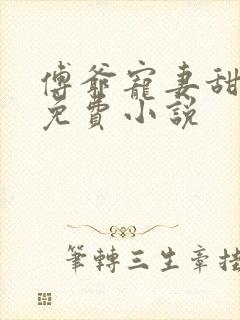 傅爺寵妻甜
免費小說
筆轉三生章挂